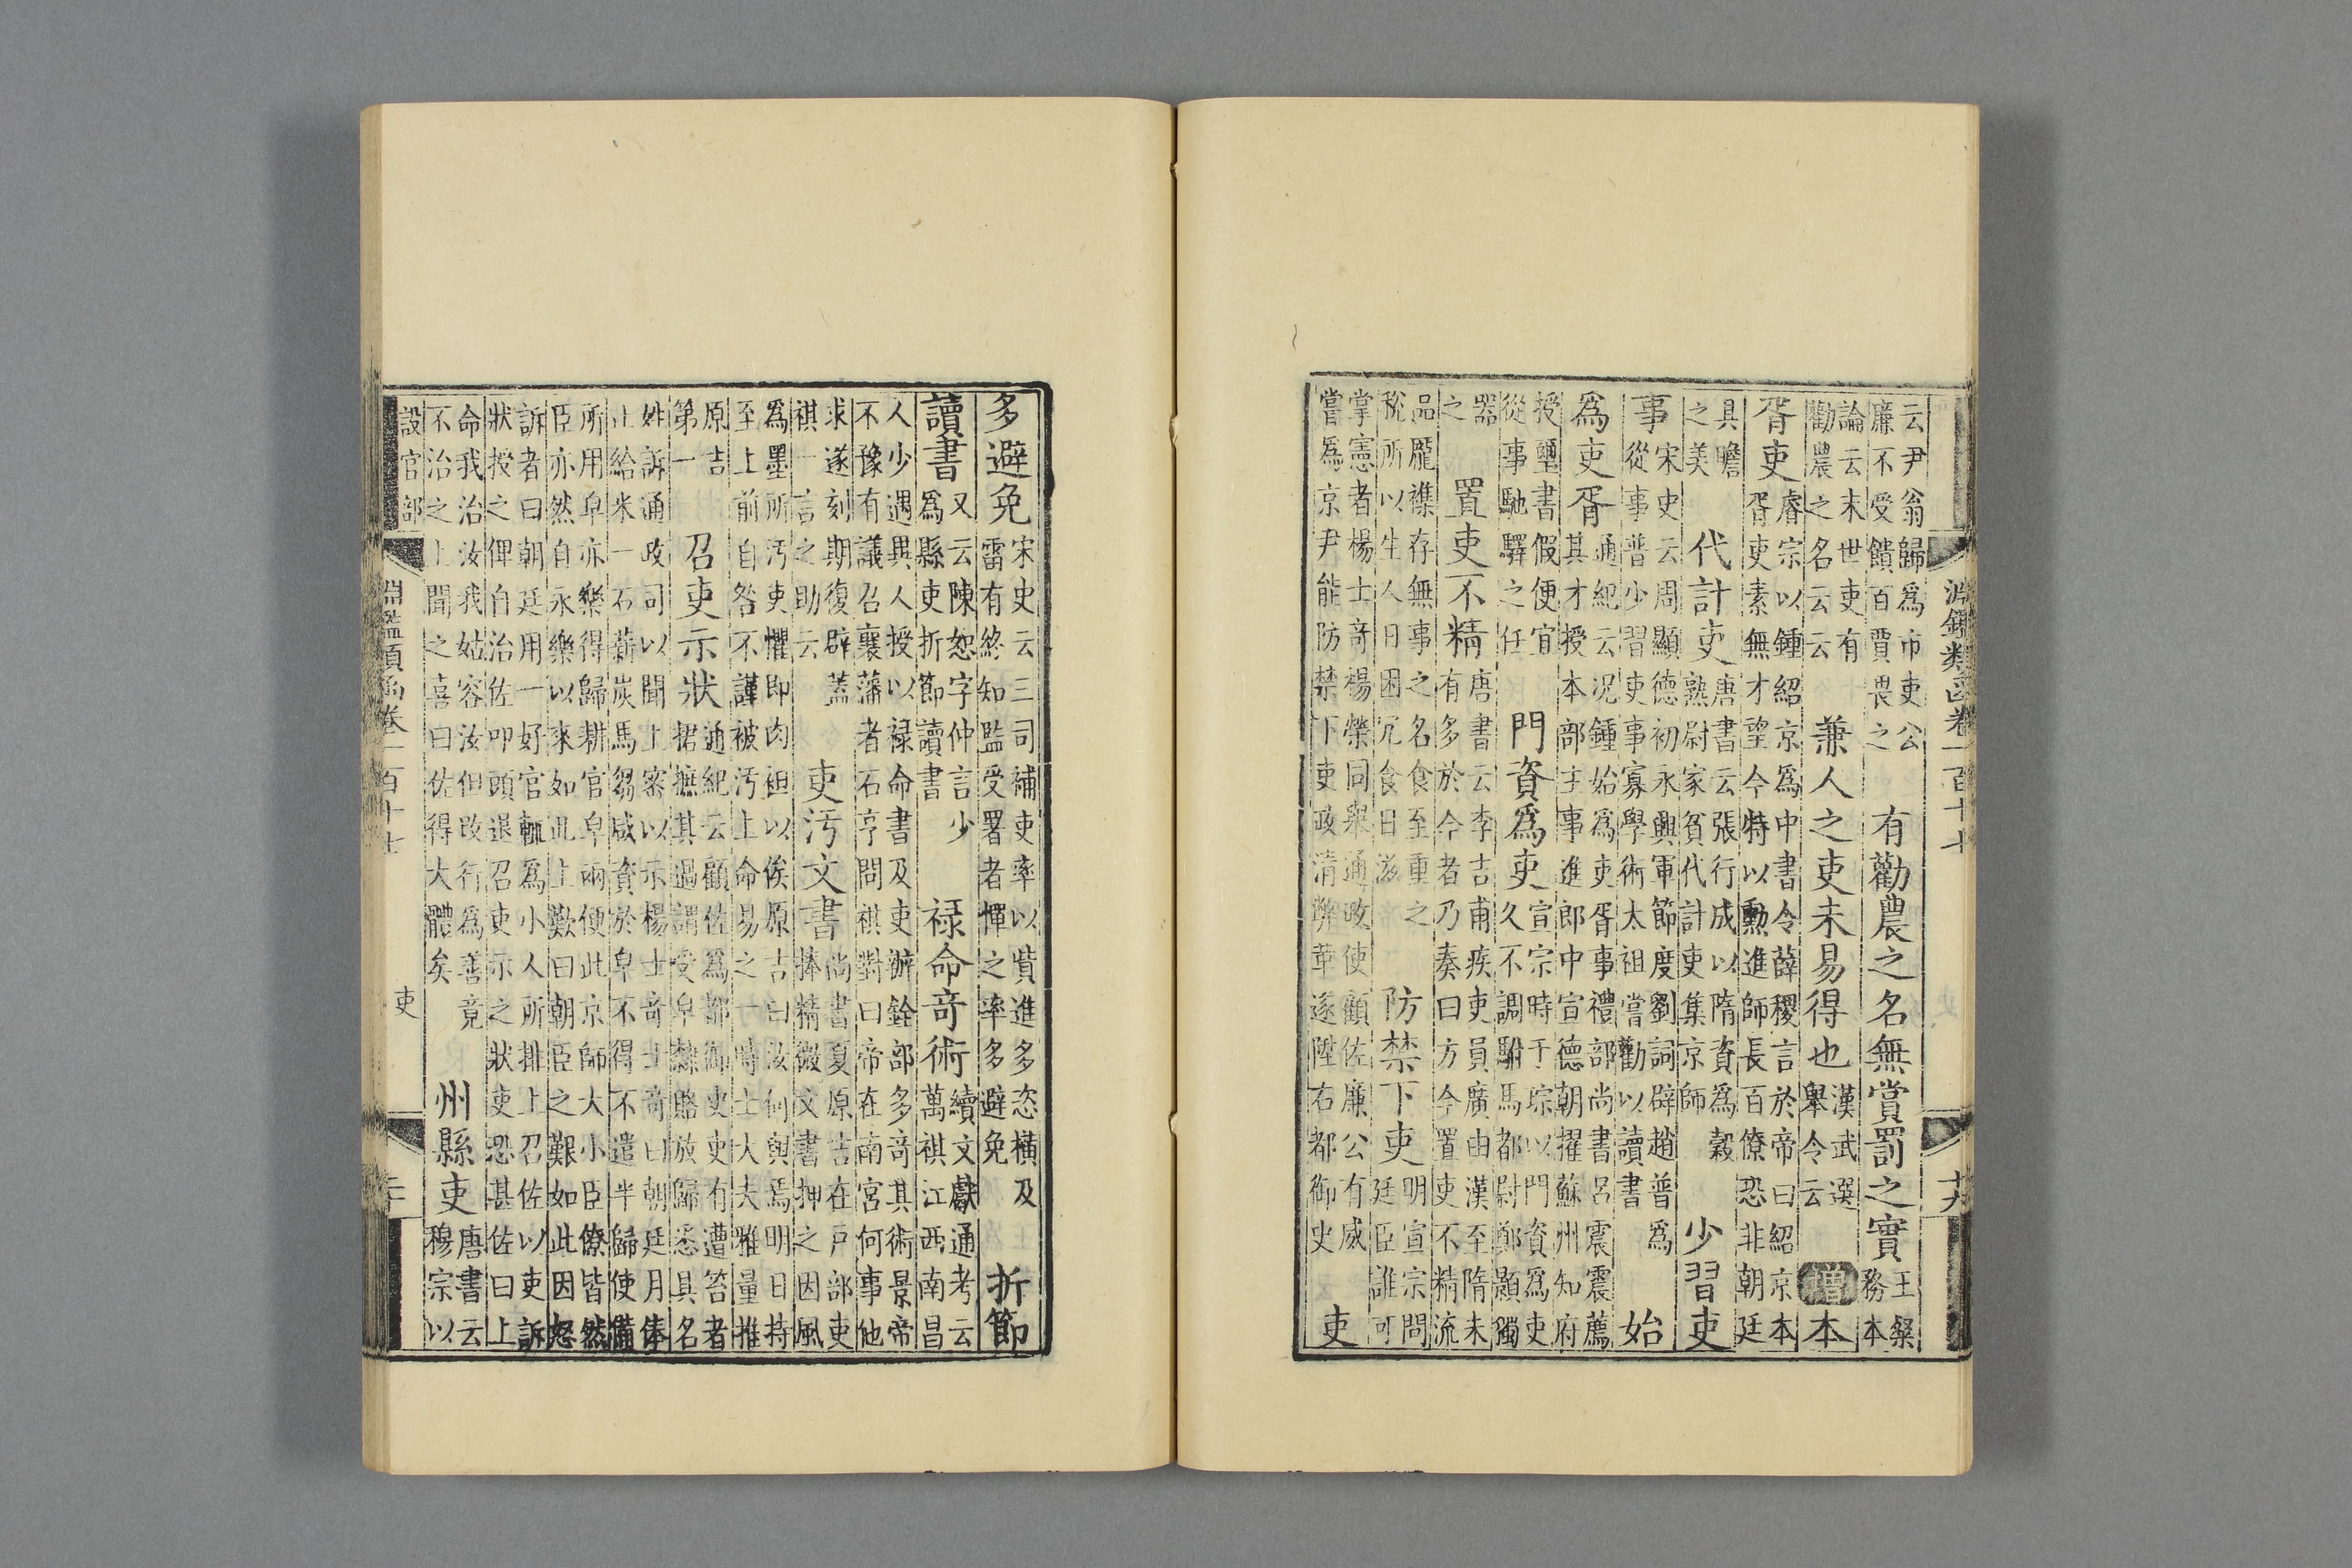 淵鑑類函卷一百十七 十六
云尹翁歸爲市吏公廉不受饋百賈畏之 有勸農之名無賞罰之實 王粲務本
論云末世吏有勸農之名云云 兼人之吏未易得也 漢武選舉令云 增 本
胥吏 睿宗以鍾紹京爲中書令薛稷言於帝曰紹京本胥吏素無才望今特以勳進師長百僚恐非朝廷
具瞻之美 代計吏 唐書云張行成以隋資爲穀熟尉家貧代計吏集京師 少習吏
事 宋史云周顯德初永興軍節度劉詞辟趙普爲從事普少習吏事寡學術太祖嘗勸以讀書 始
爲吏胥 通紀云况鍾始爲吏胥事禮部尚書呂震震薦其才授本部主事進郎中宣德朝擢蘇州知府
授璽書假便宜從事馳驛之任 門資爲吏 宣宗時于琮以門資爲吏久不調駙馬都尉鄭顥獨
器之 置吏不精 唐書云李吉甫疾吏員廣由漢至隋未有多於今者乃奏曰方今置吏不精流
品龎襍存無事之名食至重之稅所以生人日困冗食日滋 防禁下吏 明宣宗問廷臣誰可
掌憲者楊士奇楊榮同舉通政使顧佐廉公有威嘗爲京尹能防禁下吏政清弊革遂陞右都御史 吏
多避免 宋史云三司補吏率以貲進多恣橫及雷有終知監受署者憚之率多避免 折節
讀書 又云陳恕字仲言少爲縣吏折節讀書 祿命奇術 續文獻通考云萬祺江西南昌
人少遇異人授以祿命書及吏辦銓部多奇其術景帝不豫有議召襄藩者石亨問祺對曰帝在南宮何事他
求遂刻期復辟蓋祺一言之助云 吏汚文書 尚書夏原吉在戶部吏捧精微文書押之因風
爲墨所汚吏懼即肉袒以俟原吉曰汝何與焉明日持至上前自咎不謹被汚上命易之一時士大夫雅量推
原吉第一 召吏示狀 通紀云顧佐爲都御史吏有遭笞者捃摭其過謂受皁隸賂放歸悉具名
姓訴通政司以聞上密以示楊士奇士奇曰朝廷月俸止給米一石薪炭馬芻咸資於皁不得不遣半歸使備
所用皁亦樂得歸耕官皁兩便此京師大小臣僚皆然臣亦然自永樂以來如此上歎曰朝臣之艱如此因怒
訴者曰朝廷用一好官輒爲小人所排上召佐以吏訴狀授之俾自治佐叩頭退召吏示之狀吏恐甚佐曰上
命我治汝我姑容汝但改行爲善竟不治之上聞之喜曰佐得大體矣 州縣吏 唐書云穆宗以
設官部 淵鑑類函卷一百十七 吏